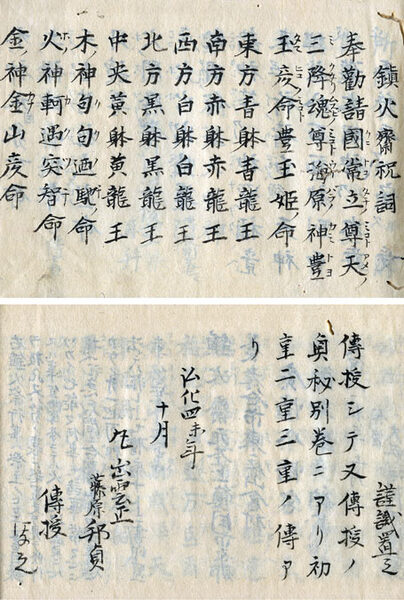 鎮火齋祝詞
奉勸請國常立尊天
三降魂尊海原神豊
玉彦命豊玉姫ノ命
東方青躰青龍王
南方赤躰赤龍王
西方白躰白龍王
北方黒躰黒龍王
中央黄躰黄龍王
木ノ神句句廼馳ノ命
火ノ神軻遇突智命
金ノ神金山彦命
謹識置之
傳授シテ又傳授ノ
奥秘別巻ニアリ初
重二重三重ノ傳ア
リ
弘化四未年
十月
出雲正
藤原邦貞
傳授